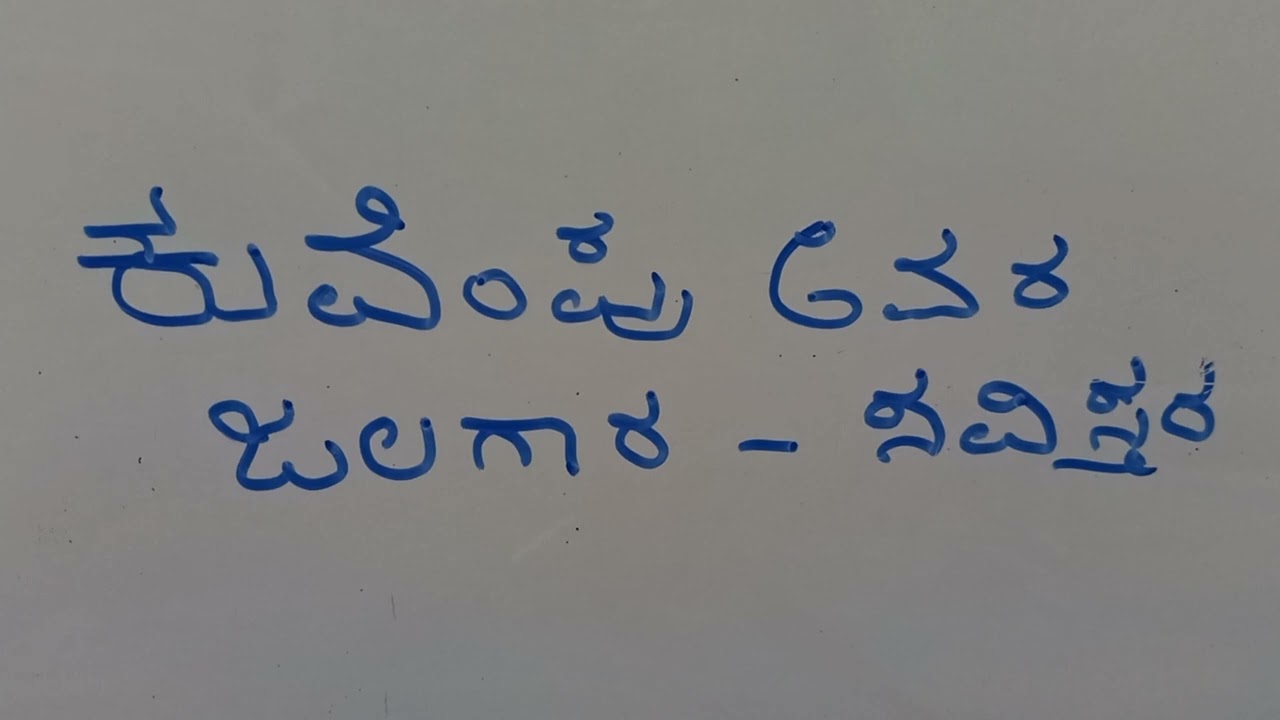 ಕುವೆಂಪು ಅವರ
ಜಲಗಾರ - ಸವಿಸ್ತರ